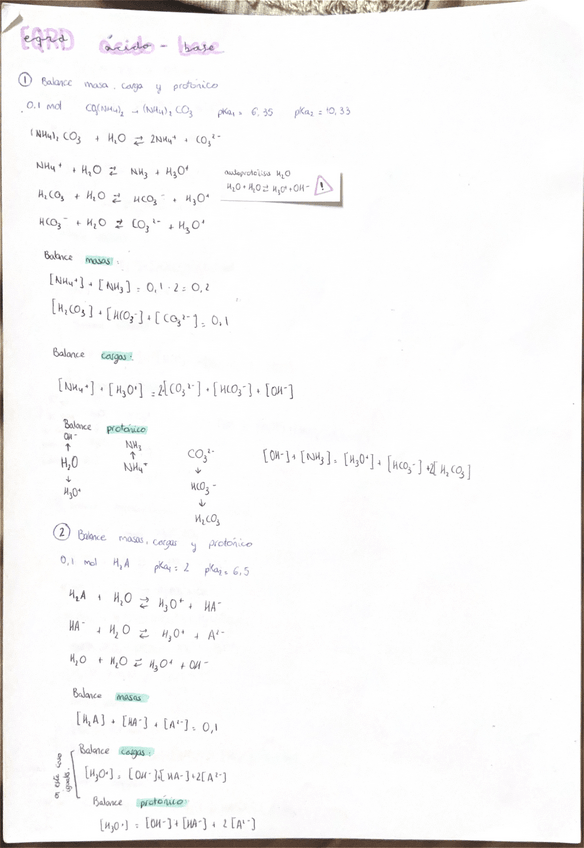 EQRD ácido - base
① Balance masa, carga y protónico
0,1 mol CO(NH₄)₂ → (NH₄)₂CO₃ pKa₁ = 6,35 pKa₂ = 10,33
(NH₄)₂CO₃ + H₂O ⇄ 2NH₄⁺ + CO₃²⁻
NH₄⁺ + H₂O ⇄ NH₃ + H₃O⁺
autoprotólisis H₂O
H₂O + H₂O ⇄ H₃O⁺ + OH⁻ !
H₂CO₃ + H₂O ⇄ HCO₃⁻ + H₃O⁺
HCO₃⁻ + H₂O ⇄ CO₃²⁻ + H₃O⁺
Balance masas:
[NH₄⁺] + [NH₃] = 0,1 · 2 = 0,2
[H₂CO₃] + [HCO₃⁻] + [CO₃²⁻] = 0,1
Balance cargas:
[NH₄⁺] + [H₃O⁺] = 2[CO₃²⁻] + [HCO₃⁻] + [OH⁻]
Balance protónico
OH⁻
↑
H₂O
↓
H₃O⁺
NH₃
↑
NH₄⁺
CO₃²⁻
↓
HCO₃⁻
↓
H₂CO₃
[OH⁻] + [NH₃] = [H₃O⁺] + [HCO₃⁻] + 2[H₂CO₃]
② Balance masas, cargas y protónico
0,1 mol H₂A pKa₁ = 2 pKa₂ = 6,5
H₂A + H₂O ⇄ H₃O⁺ + HA⁻
HA⁻ + H₂O ⇄ H₃O⁺ + A²⁻
H₂O + H₂O ⇄ H₃O⁺ + OH⁻
Balance masas
[H₂A] + [HA⁻] + [A²⁻] = 0,1
Balance cargas:
[H₃O⁺] = [OH⁻] + [HA⁻] + 2[A²⁻]
en este caso
iguales
Balance protónico:
[H₃O⁺] = [OH⁻] + [HA⁻] + 2[A²⁻]